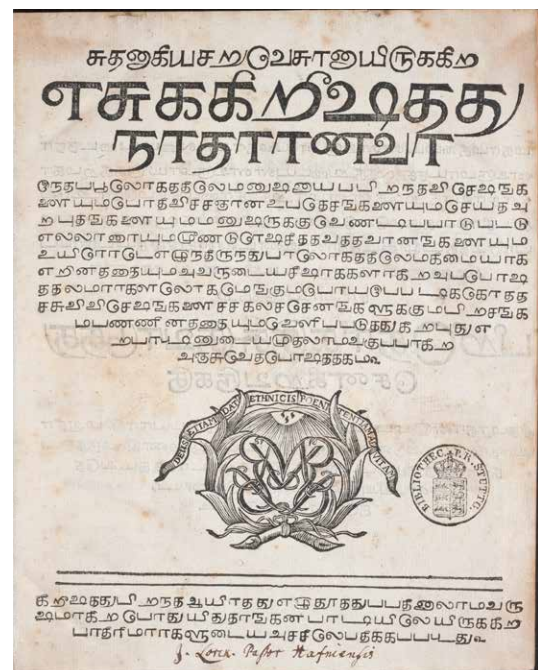 சுதனாகியசறுவேசுரனாயிருககிற
எசுககிறீஷதது
நாதரானவர
இநதபபூலோகததிலேமனுஷனாயபபிறநதவிசேஷஙக
ளையுமபோதிவிசசஞானஉபதேசஙகளையுமசெயதஅ
றபுதஙகளையுமமனுஷருககுவேணடிபபாடுபடடு
எலலாரையுமமூணடுரேஷிததவததவானஙகளையும
உயிரோடேஎழுநதிருநதுபரலோகததிலேமகிமையாக
எறினததையுமஅவருடையசீஷரகளாகிறஅபபோஷ
ததலமாரகளலோகமெஙகுமபோய
சசுவிவிசேஷஙகளைசசகலசசெனஙகளுககுமபிறசஙக
மபணணினததையுமவெளிபபடுததுகிறபுதுஎ
றபாடடினுடையமுதலாமவகுபபாகிற
அஞசுவேதபொஷததகம௨
DEUS ETIAM DAT ETHNICIS POENITENTIAM AD VITAM
BIBLIOTHECA P.R. STUTTG.
கிறீஷததுபிறநதஆயிரததுஎழுநூததுபபதினாலாமவரு
ஷமாகிறபோதுயிதுதரஙகனபாடியிலேயிருககிற
பாதிரிமாரகளுடையஅசசிலேபதிககபபடடது௨
J. Loren. Pastor Hafniensis